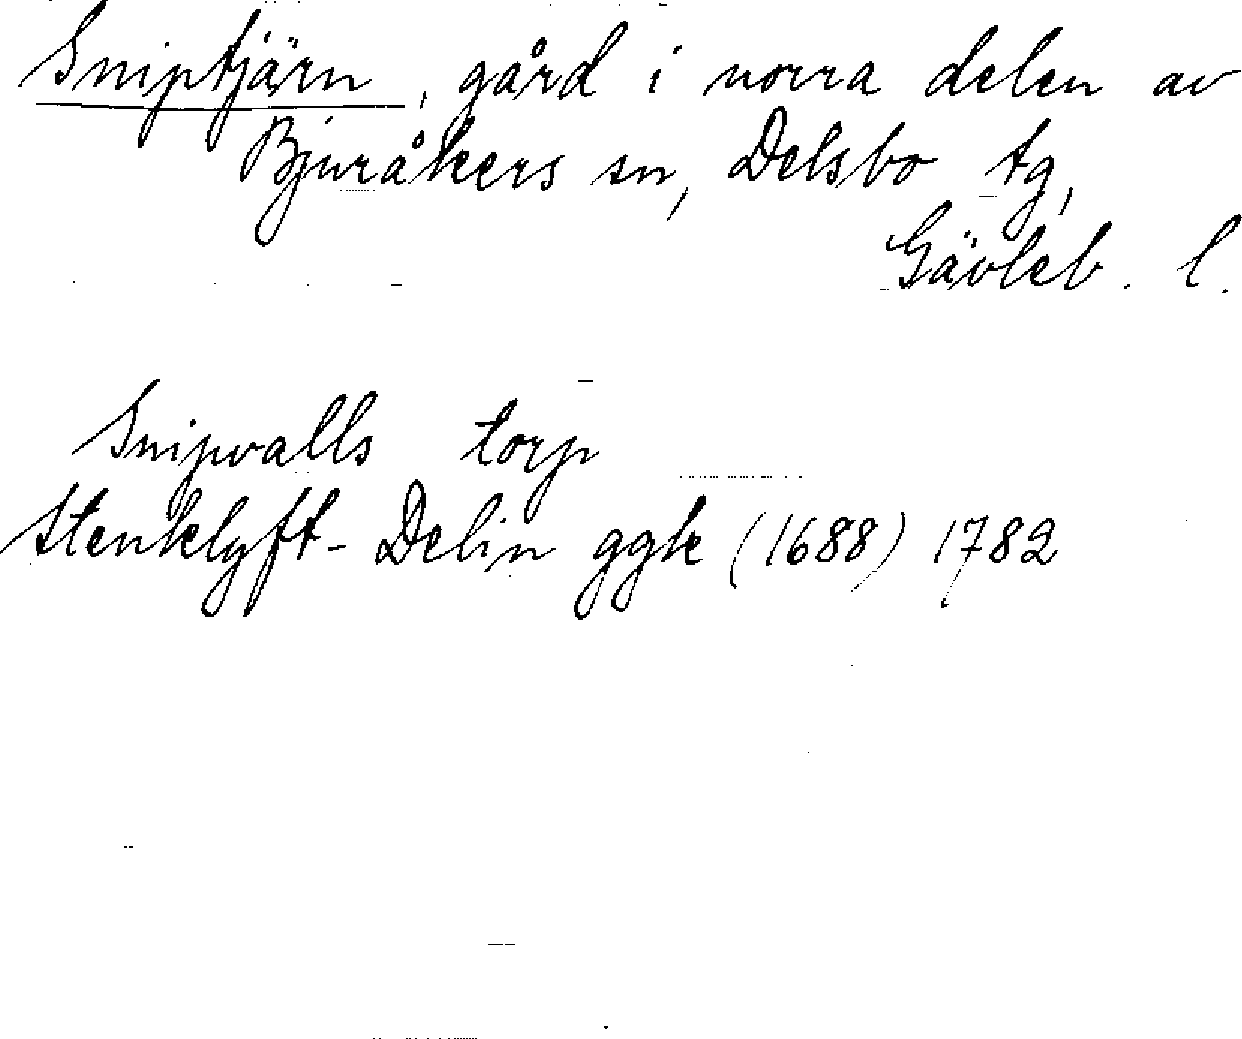 Sniptjärn, gård i norra delen av
Bjuråkers sn, Delsbo tg,
Gävleb. l.
Snipvalls torp
Stenklyft- Delin ggk (1688) 1782